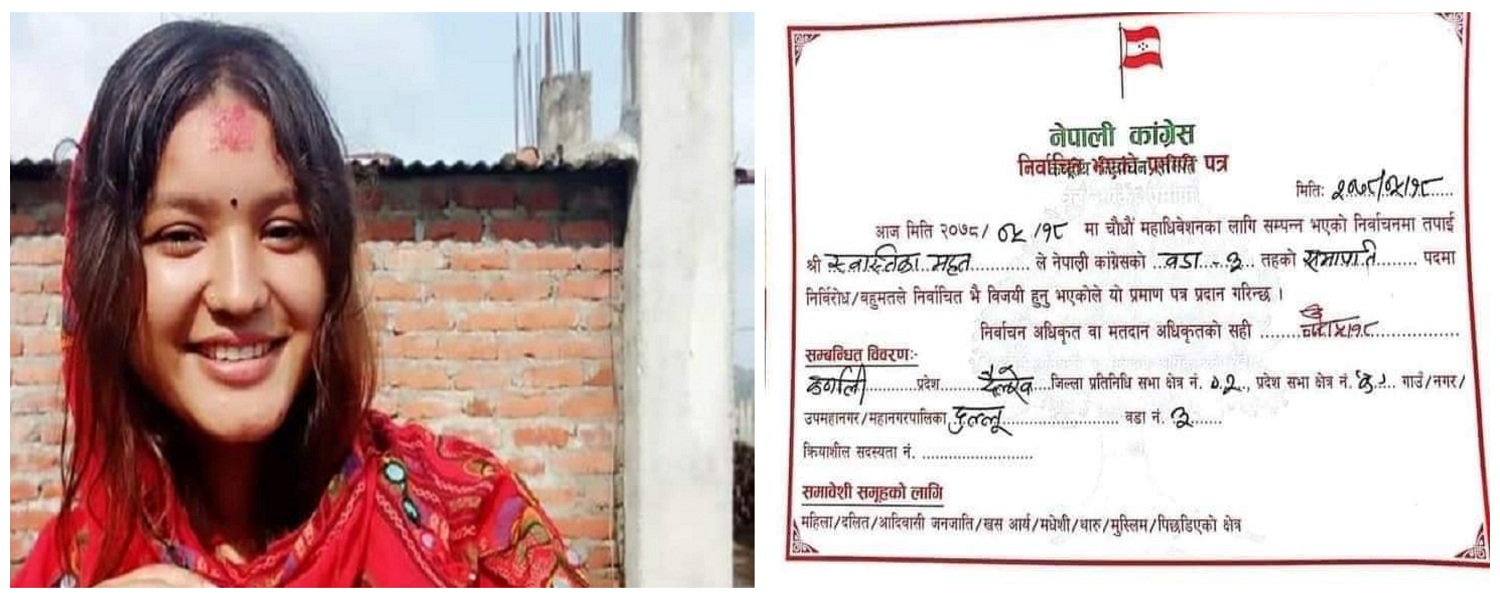 नेपाली कांग्रेस
निर्वाचित भएको प्रमाण पत्र
मितिः २०७८/०५/१८
आज मिति २०७८/ ०५ /१८ मा चौधौं महाधिवेशनका लागि सम्पन्न भएको निर्वाचनमा तपाई
श्री स्वास्तिका महत ले नेपाली कांग्रेसको वडा - ३ तहको सभापति पदमा
निर्विरोध/बहुमतले निर्वाचित भै विजयी हुनु भएकोले यो प्रमाण पत्र प्रदान गरिन्छ ।
निर्वाचन अधिकृत वा मतदान अधिकृतको सही
सम्बन्धित विवरणः-
कर्णाली प्रदेश दैलेख जिल्ला प्रतिनिधि सभा क्षेत्र नं. ०२, प्रदेश सभा क्षेत्र नं. गाउँ/नगर/
उपमहानगर/महानगरपालिका दुल्लू वडा नं. ३
क्रियाशील सदस्यता नं.
समावेशी समूहको लागि
महिला/दलित/आदिवासी जनजाति/खस आर्य/मधेशी/थारु/मुस्लिम/पिछडिएको क्षेत्र